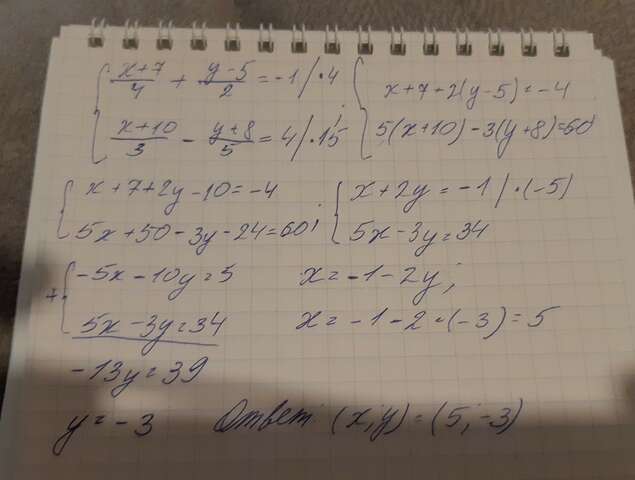 (x+7)/4 + (y-5)/2 = -1 / · 4
(x+10)/3 - (y+8)/5 = 4 / · 15 ;
x+7+2(y-5)=-4
5(x+10)-3(y+8)=60
x+7+2y-10=-4
5x+50-3y-24=60 ;
x+2y=-1 / · (-5)
5x-3y=34
+ -5x-10y=5
5x-3y=34
-13y=39
y=-3
x=-1-2y;
x=-1-2·(-3)=5
Ответ: (x;y)=(5;-3)